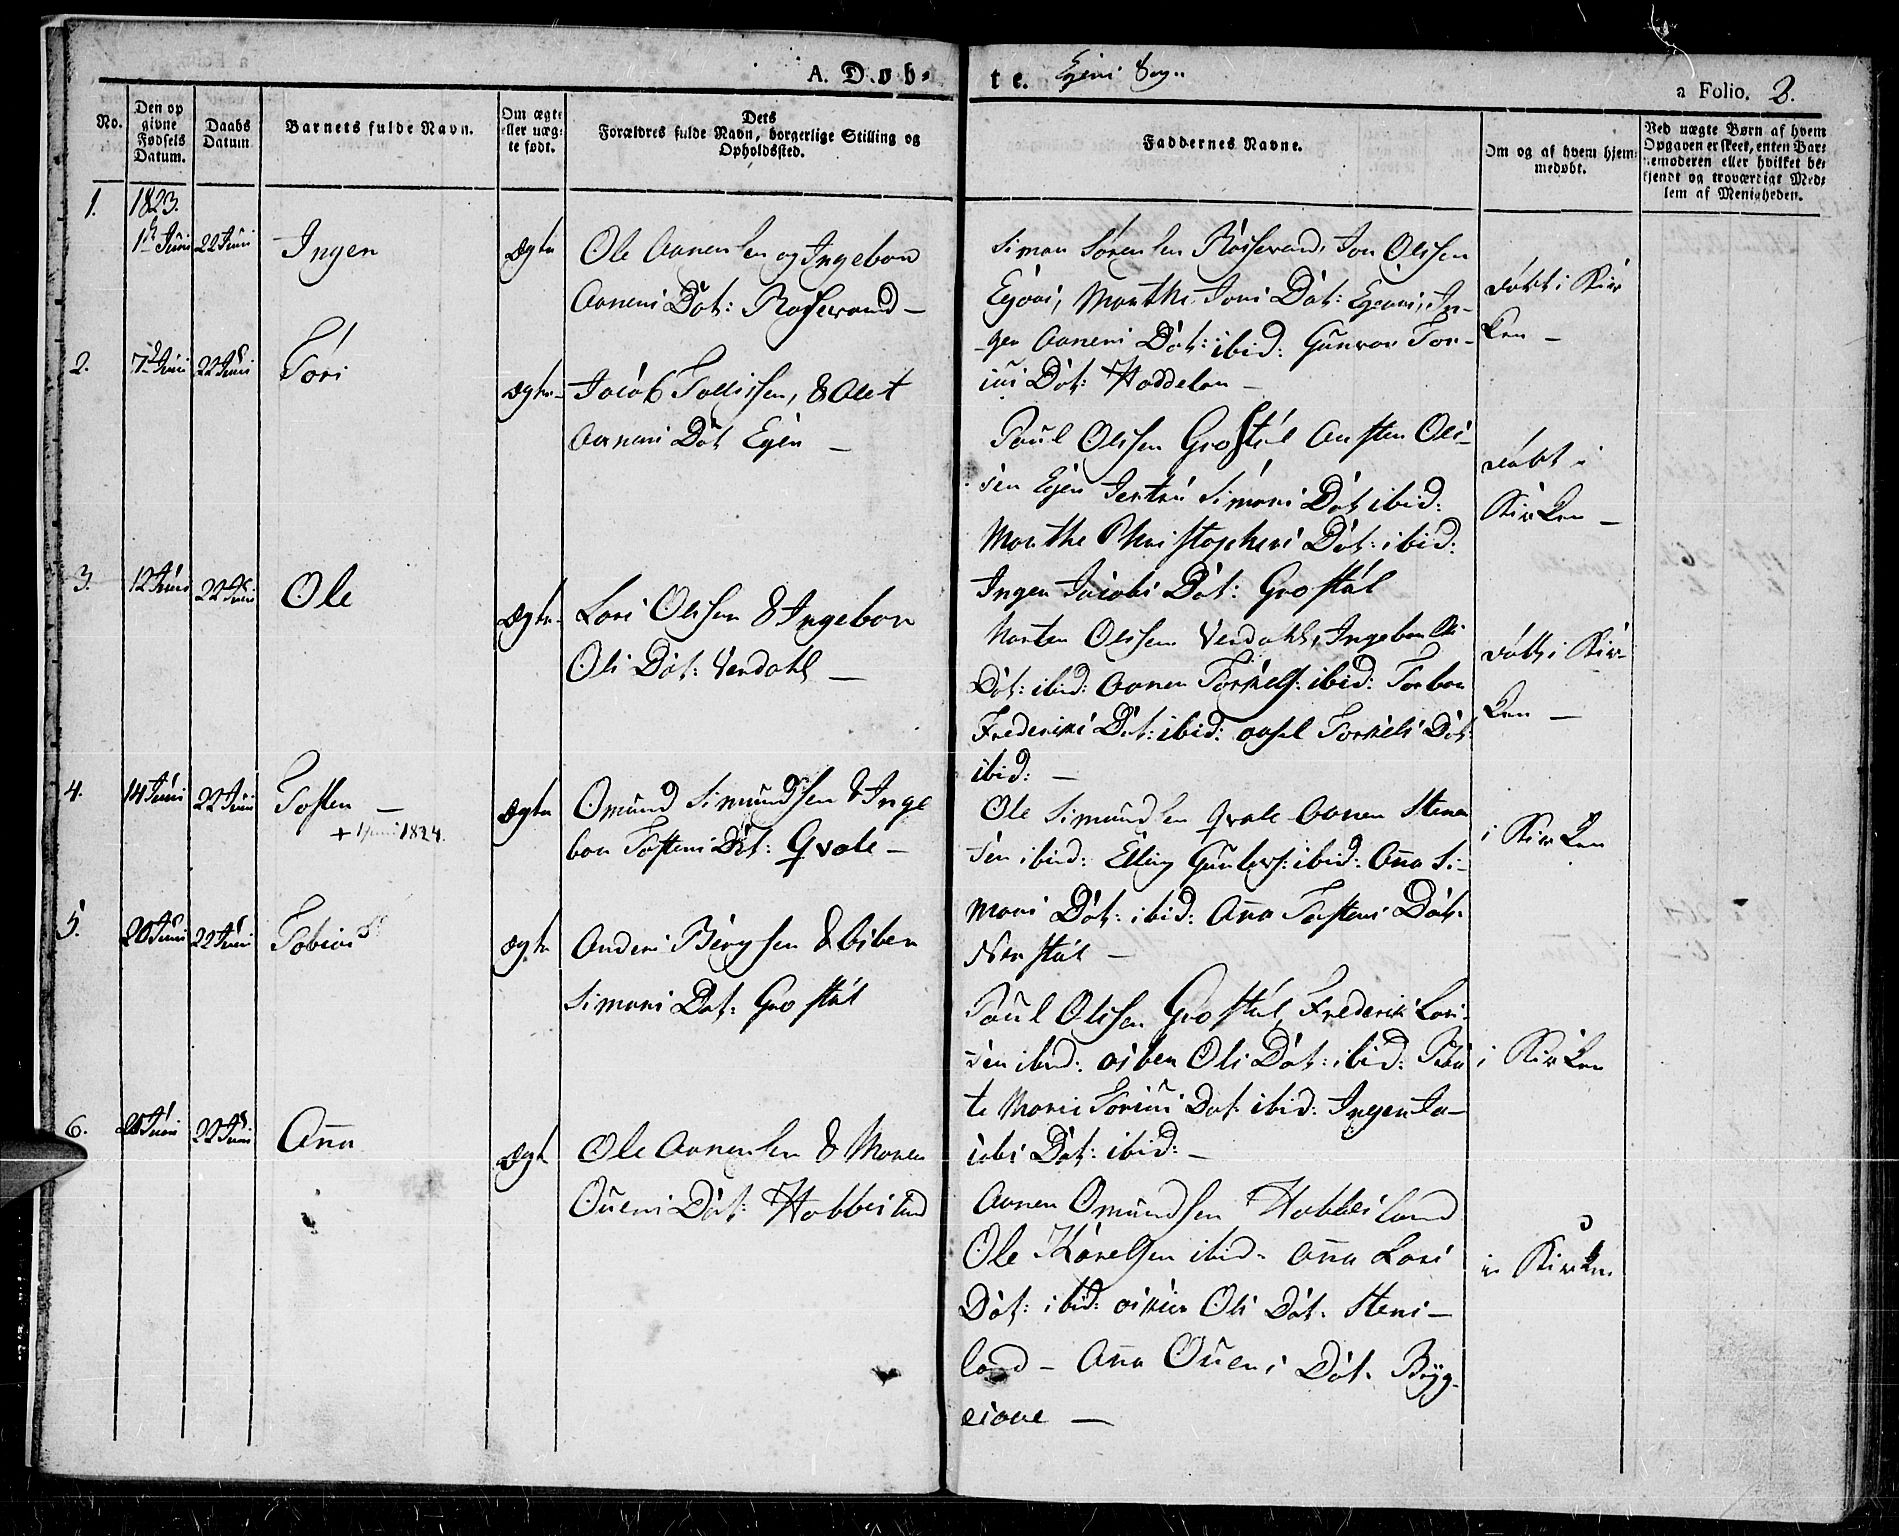 A. Døb-
te. Sogn
a Folio. 2.
No.
Den op
givne
Fødsels
Datum.
Daabs
Datum
Barnets fulde Navn.
Om ægte
eller uæg-
te født.
Dets
Forældres fulde Navn, borgerlige Stilling og
Opholdssted.
Faddernes Navne.
Om og af hvem hjem-
medøbt.
Ved uægte Børn af hvem
Opgaven er skeet, enten Bar-
nemoderen eller hvilket be-
kjendt og troværdigt Med-
lem af Menigheden.
1.
1823.
1 Juni
22 Juni
Inger
Ægte
Ole Aanensen og Ingebor
Aanens Dot: Roswand –
Simon Sørensen Jon Olssen
Marthe Jons Dot: In-
ger Aanens Dot: ibid: Gunvor Tor-
Dot: Haddelan –
døbt i Kir
ken –
2.
7 Juni
22 Juni
Tori
Ægte
Jacob Tollissen, & Alet
Aanens Dot Egen –
Poul Olssen Grostøl Austen Ols-
sen Egen Jertru Simons Dot ibid:
Marthe Christophers Dot: ibid:
Inger Jacobs Dot: Grostøl
døbt i
Kirken –
3.
12 Juni
22 Juni
Ole
Ægte
Lars Olssen & Ingebor
Ols Dot: Verdahl –
Morten Olssen Verdahl, Ingebor Ols
Dot: ibid: Aanen Torkels: ibid: Torbor
Frederiks Dot: ibid: Torkels Dot:
ibid: –
døbt i Kir-
ken –
4.
14 Juni
22 Juni
Tosten –
+ 1824.
Ægte
Omund Simundsen & Inge
bor Tostens Dot: Qvale –
Ole Simundsen Qvale Aanen Stena
sen ibid: Elling ibid: Anna Si-
mons Dot: ibid: Anna Tostens Dot:
i Kirken
5.
20 Juni
22 Juni
Tobias
Ægte
Anders Bergsen & Asber
Simons Dot: Grostøl
Poul Olssen Grostøl Frederik Lars-
sen ibid: Asber Ols Dot: ibid:
te Marie Dot ibid: Inger Ja-
cobs Dot: ibid: –
i Kirken
6.
20 Juni
22 Juni
Anna
Ægte
Ole Aanensen & Maren
Ouens Dot: Hobbesland
Aanen Omundsen Hobbesland
Ole ibid: Anna Lars
Dot: ibid: Ols Dot. Stens-
land – Anna Ouens Dot. Byg-
–
i Kirken